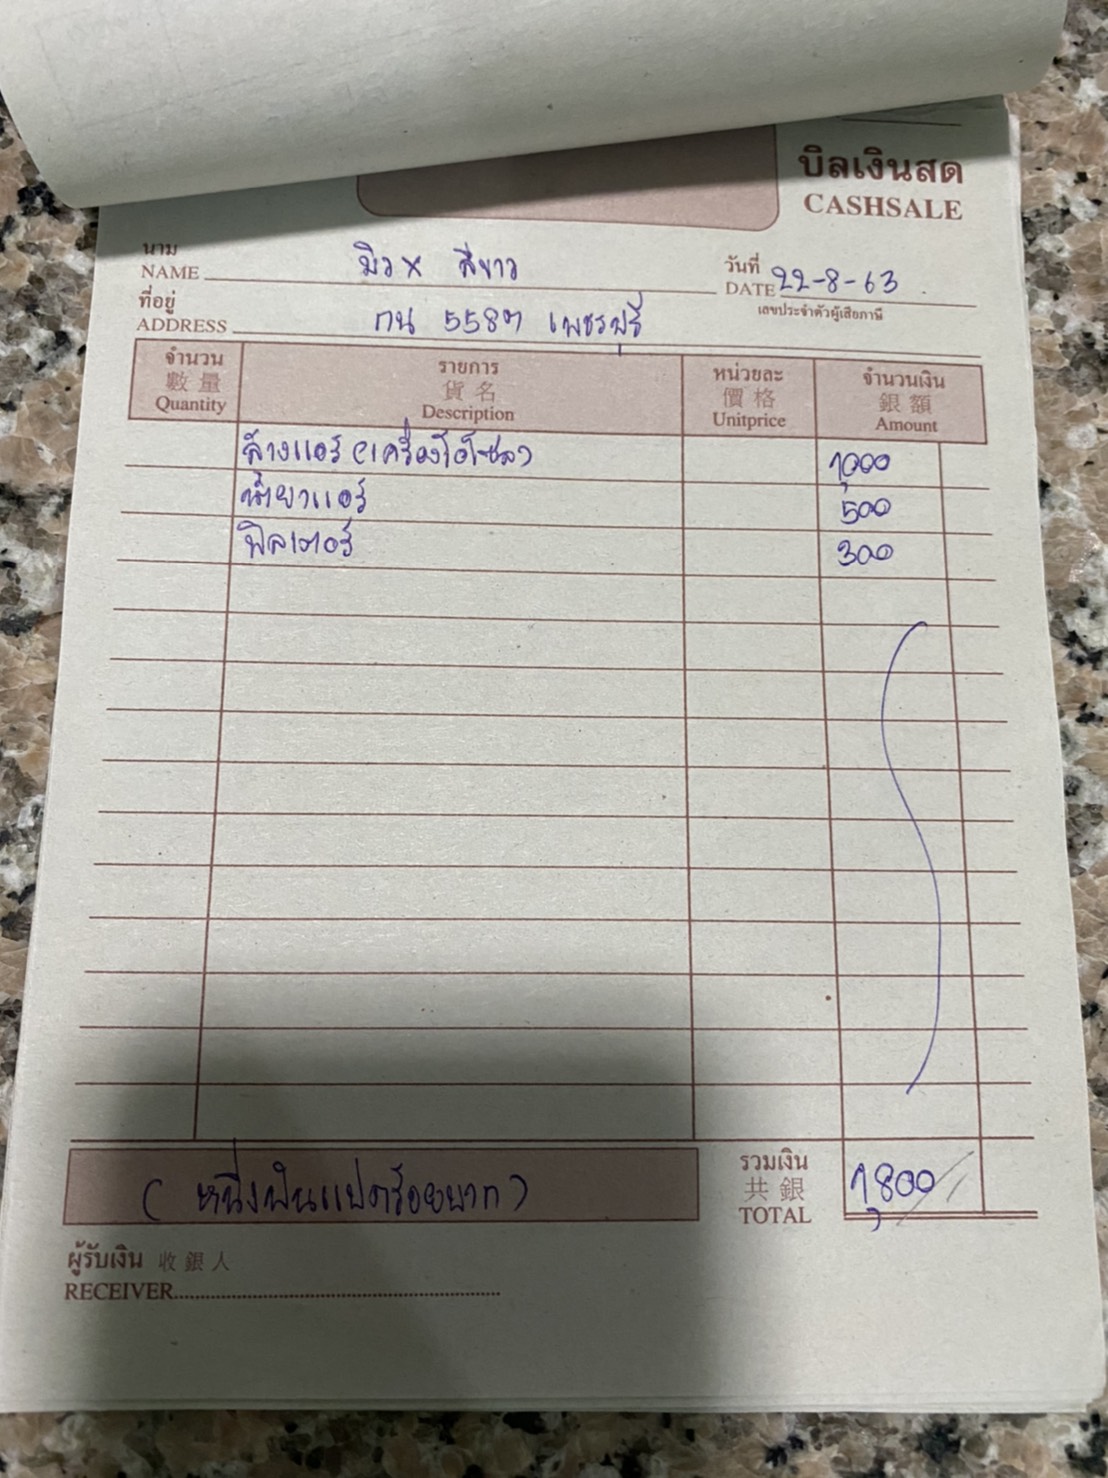 บิลเงินสด
CASHSALE
นาม
NAME มิว x สีขาว
วันที่
DATE 22-8-63
ที่อยู่
ADDRESS กน 5587 เพชรบุรี
เลขประจำตัวผู้เสียภาษี
จำนวน รายการ หน่วยละ จำนวนเงิน
數量 貨名 價格 銀額
Quantity Description Unitprice Amount
ล้างแอร์ (เครื่องโอโซน) 1,000
น้ำยาแอร์ 500
ฟิลเตอร์ 300
(หนึ่งพันแปดร้อยบาท)
รวมเงิน
共銀
TOTAL 1,800
ผู้รับเงิน 收銀人
RECEIVER